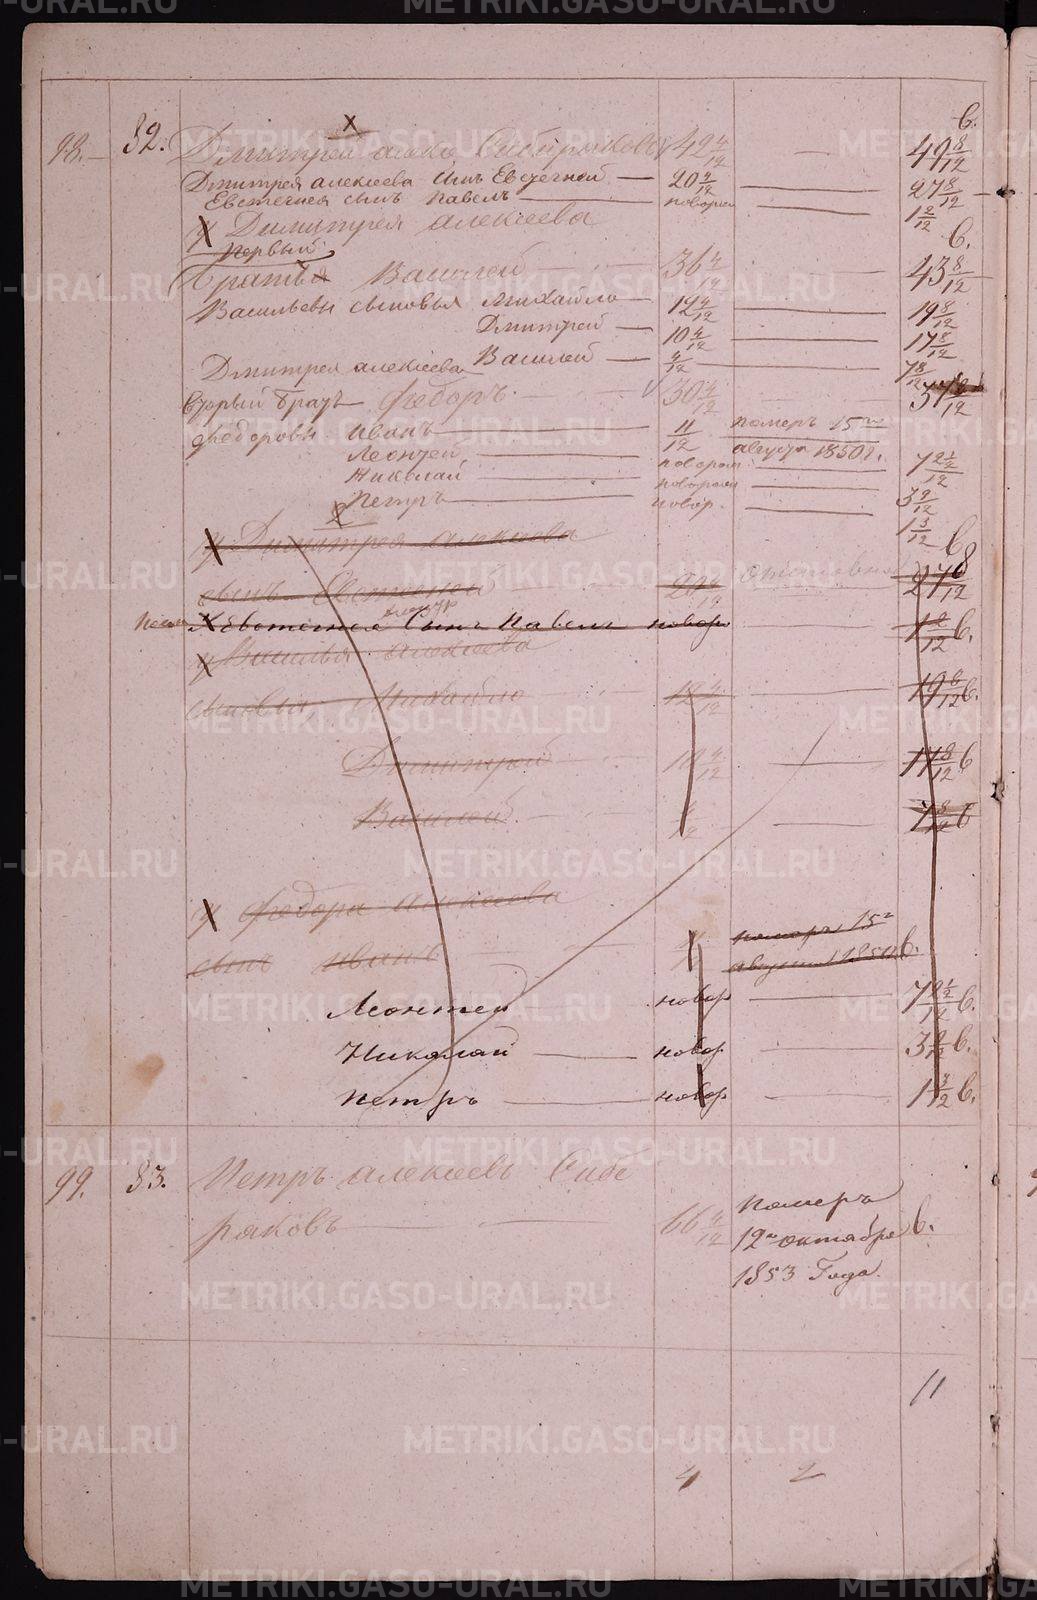 98. 82. Дмитрей алекс Сибиряковъ 42 4/12 — 49 8/12 в.
Дмитрея алексеева сынъ Евстегней — 20 4/12 — 27 8/12
Евстегнея сынъ Павелъ — новорож — 1 2/12
Димитрея алексеева
первый
Братья Василей 36 4/12 — 43 8/12 в.
Васильевы сыновья Михайло — 12 4/12 — 19 8/12
Дмитрей — 10 4/12 — 17 8/12
Василей — 4/12 — 7 8/12
Дмитрея алексеева
вторый братъ Федоръ 30 4/12 — 37 8/12
Федоровы Иванъ — 11/12 померъ 15го
августа 1850 г.
Леонтей — новорож — 7 2 1/2/12
Николай — новорож — 3 9/12
Петръ — новор. — 1 3/12
Димитрея алексеева
сынъ Евстегней 20 4/12 27 8/12 в
Евстегнея сынъ Павелъ новор — 1 2/12 в.
Василья алексеева
сыновья Михайло 12 4/12 — 19 8/12 в.
Димитрей 10 4/12 — 17 8/12 в
Василей 4/12 — 7 8/12 в
Федора алексеева померъ 15го
сынъ Иванъ августа 1850 в.
Леонтей новор — 7 2 1/2/12 в.
Николай — новор — 3 9/12 в.
Петръ — новор — 1 3/12 в.
99. 83. Петръ алексеевъ Сибе
ряковъ — 66 4/12 померъ
12го октября в.
1853 Года.
11
4 2
METRIKI.GASO-URAL.RU